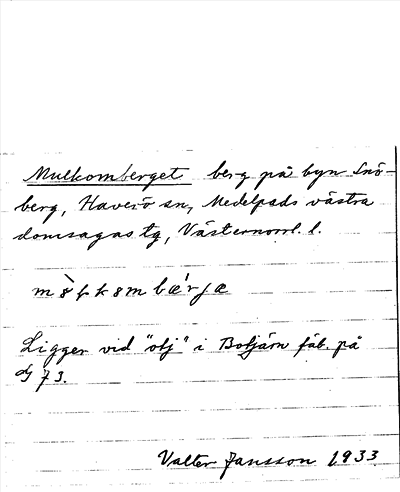 Mulkomberget berg på byn Snö-
berg, Haverö sn, Medelpads västra
domsagas tg, Västernorrl. l.
Ligger vid "otj" i Boltjärn fäb. på
73.
Valter Jansson 1933